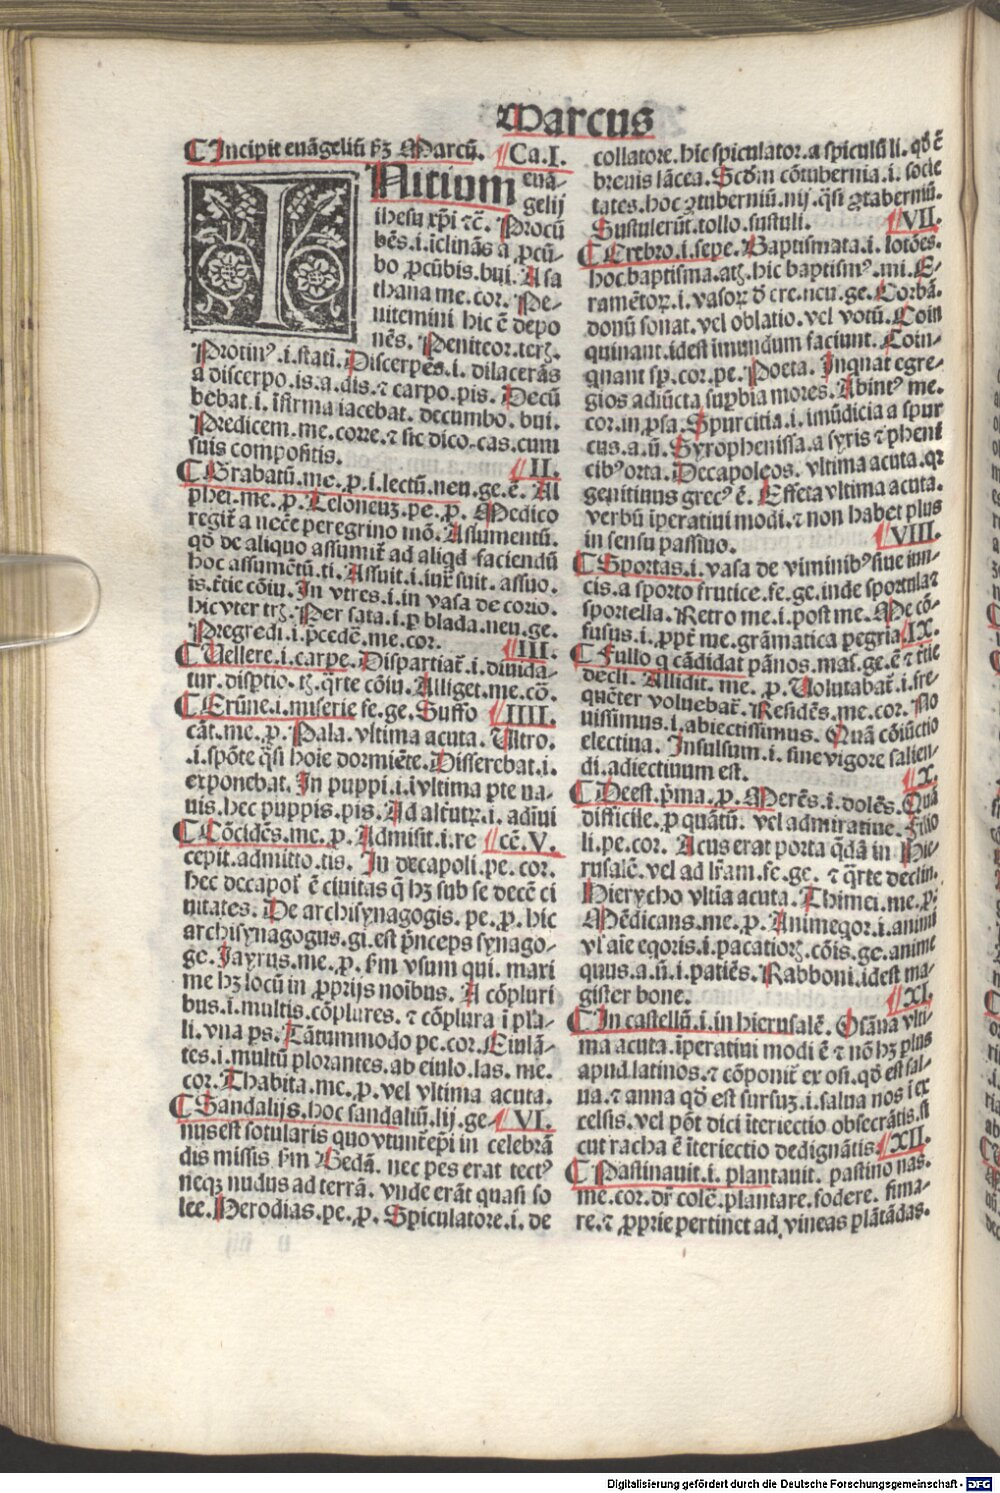 Marcus
¶ Incipit euãgeliũ ẜꝫ Marcũ. ¶ Ca. I.
INitium euã-
gelij
ihesu xp̃i ⁊c̃. Procũ
bẽs .i. iclinãs a ꝓcũ-
bo ꝓcũbis. bui. A sa
thana me. cor. Pe-
nitemini hic ẽ depo
nẽs. Peniteor. terꝫ.
Protinꝰ .i. stati. Discerpẽs .i. dilacerãs
a discerpo. is. a. dis. ⁊ carpo. pis. Decũ
bebat .i. ĩfirma iacebat. decumbo. bui.
Predicem. me. corre. ⁊ sic dico. cas. cum
suis compositis. ¶ II.
¶ Grabatũ. me. ꝓ. i. lectũ. neu. ge. ẽ. Al
phei. me. ꝓ. Teloneuꝫ. pe. ꝓ. Medico
regit̃ a necẽ peregrino mõ. Assumentũ.
qď de aliquo assumit̃ ad aliqď faciendũ
hoc assumẽtũ. ti. Assuit .i. iux̃ suit. assuo.
is. t̃tie cõiu. In vtres .i. in vasa de corio.
hic vter trꝫ. Per sata .i. ꝑ blada. neu. ge.
Pregredi .i. p̃cedẽ. me. cor. ¶ III.
¶ Vellere .i. carpe. Dispartiat̃ .i. diuida-
tur. disp̃tio. tꝫ. q̃rte cõiu. Alliget. me. cõ.
¶ Erũne .i. miserie fe. ge. Suffo ¶ IIII.
cãt. me. ꝓ. Pala. vltima acuta. Vltro.
.i. spõte q̃si hoie dormiẽte. Disserebat .i.
exponebat. In puppi .i. i vltima pte na-
uis. hec puppis. pis. Ad alt̃utꝝ .i. adiui
¶ Cõcidẽs. me. ꝓ. Admisit .i. re ¶ cẽ. V.
cepit. admitto. tis. In decapoli. pe. cor.
hec decapol̃ ẽ ciuitas q̃ hꝫ sub se decẽ ci
uitates. De archisynagogis. pe. ꝓ. hic
archisynagogus. gi. est p̃nceps synago-
ge. Jayrus. me. ꝓ. ẜm vsum qui. maxi
me hꝫ locũ in ꝓprijs noĩbus. A cõpluri
bus .i. multis. cõplures. ⁊ cõplura i pla-
li. vna ps. Tãtummodo pe. cor. Eiulã-
tes .i. multũ plorantes. ab eiulo. las. me.
cor. Thabita. me. ꝓ. vel vltima acuta.
¶ Sandalijs. hoc sandaliũ. lij. ge- ¶ VI.
nus est sotularis quo vtunt̃ ep̃i in celebrã
dis missis ẜm Bedã. nec pes erat tectꝰ
necꝫ nudus ad terrã. vnde erãt quasi so
lee. Herodias. pe. ꝓ. Spiculatore .i. de
collatore. hic spiculator. a spiculũ li. qď ẽ
breuis lãcea. Scďm cõtubernia .i. socie
tates. hoc ꝯtuberniũ. nij. q̃si ꝯtaberniũ.
Sustulerũt. tollo. sustuli. ¶ VII.
¶ Crebro .i. sepe. Baptismata .i. lotões.
hoc baptisma. atꝫ. hic baptismꝰ. mi. E-
ramẽtoꝝ .i. vasoꝝ ď ere. neu. ge. Corbã.
donũ sonat. vel oblatio. vel votũ. Coin
quinant. idest imundum faciunt. Coin-
quant sp̃. cor. pe. Poeta. Inquat egre-
gios adiũcta suꝑbia mores. Abintꝰ me.
cor. in. p̃sa. Spurcitia .i. imũdicia a spur
cus. a. ũ. Syrophenissa. a syris ⁊ pheni
cibꝰ orta. Decapoleos. vltima acuta. qꝛ
genitiuus grecꝰ ẽ. Effeta vltima acuta.
verbũ ĩperatiui modi. ⁊ non habet plus
in sensu passiuo. ¶ VIII.
¶ Sportas .i. vasa de viminibꝰ siue iun-
cis. a sporto frutice. fe. ge. inde sportula ⁊
sportella. Retro me .i. post me. Me cõ-
fusus .i. ꝓpt̃ me. grãmatica pegria ¶ IX.
¶ Fullo q cãdidat pãnos. mas̃. ge. ẽ ⁊ t̃tie
decli. Allidit. me. ꝓ. Volutabat̃ .i. fre-
quẽter voluebat̃. Residẽs. me. cor. No
uissimus .i. abiectissimus. Quã cõiũctio
electiua. Insulsum .i. sine vigore salien-
di. adiectiuum est. ¶ X.
¶ Deest. p̃ma. ꝓ. Merẽs .i. dolẽs. Quã
difficile. ꝓ quãtũ. vel admiratiue. Filio
li. pe. cor. Acus erat porta q̃dã in Hie-
rusalẽ. vel ad lr̃am. fe. ge. ⁊ q̃rte declin.
Hierycho vltĩa acuta. Thimei. me. ꝓ.
Mẽdicans. me. ꝓ. Animeqor .i. animi
vl̃ aĩe eqoris .i. pacatiorꝫ. cõis. ge. anime
quus. a. ũ. i. patiẽs. Rabboni. idest ma-
gister bone. ¶ XI.
¶ In castellũ .i. in hierusalẽ. Osãna vlti-
ma acuta. ĩperatiui modi ẽ ⁊ nõ hꝫ plus
apud latinos. ⁊ cõponit̃ ex osi. qď est sal-
ua. ⁊ anna qď est sursuꝫ .i. salua nos i ex
celsis. vel põt dici ĩteriectio obsecrãtis. si
cut racha ẽ ĩteriectio dedignãtis. ¶ XII.
¶ Pastinauit .i. plantauit. pastino nas.
me. cor. dr̃ colẽ. plantare. fodere. fima-
re. ⁊ ꝓprie pertinet ad vineas plãtãdas.
Digitalisierung gefördert durch die Deutsche Forschungsgemeinschaft - DFG